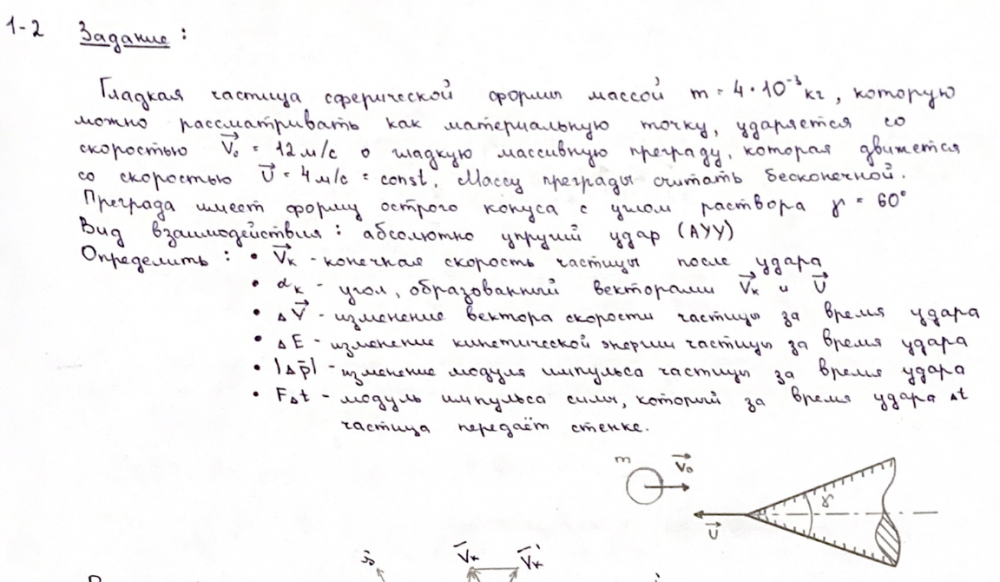 1-2 Задание:
Гладкая частица сферической формы массой m = 4·10⁻³ кг, которую
можно рассматривать как материальную точку, ударяется со
скоростью V⃗₀ = 12 м/с о гладкую массивную преграду, которая движется
со скоростью U⃗ = 4 м/с = const. Массу преграды считать бесконечной.
Преграда имеет форму острого конуса с углом раствора γ = 60°
Вид взаимодействия: абсолютно упругий удар (АУУ)
Определить: • V⃗к - конечная скорость частицы после удара
• αк - угол, образованный векторами V⃗к и U⃗
• ΔV⃗ - изменение вектора скорости частицы за время удара
• ΔE - изменение кинетической энергии частицы за время удара
• |Δp̄| - изменение модуля импульса частицы за время удара
• FΔt - модуль импульса силы, который за время удара Δt
частица передаёт стенке.
m V⃗₀
γ
U⃗
V̄к V̄к'